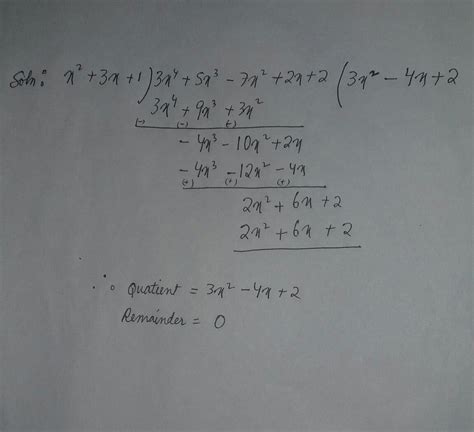 Soln: x² + 3x + 1 ) 3x⁴ + 5x³ - 7x² + 2x + 2 ( 3x² - 4x + 2
3x⁴ + 9x³ + 3x²
(-) (-) (-)
- 4x³ - 10x² + 2x
- 4x³ - 12x² - 4x
(+) (+) (+)
2x² + 6x + 2
2x² + 6x + 2
∴ Quatient = 3x² - 4x + 2
Remainder = 0